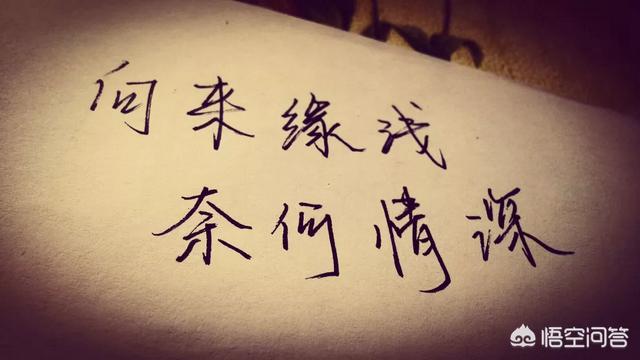 向来缘浅
奈何情深
悟空问答